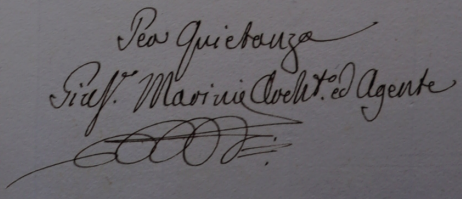 Per Quietanza
Gius.e Marini Archit.o ed Agente